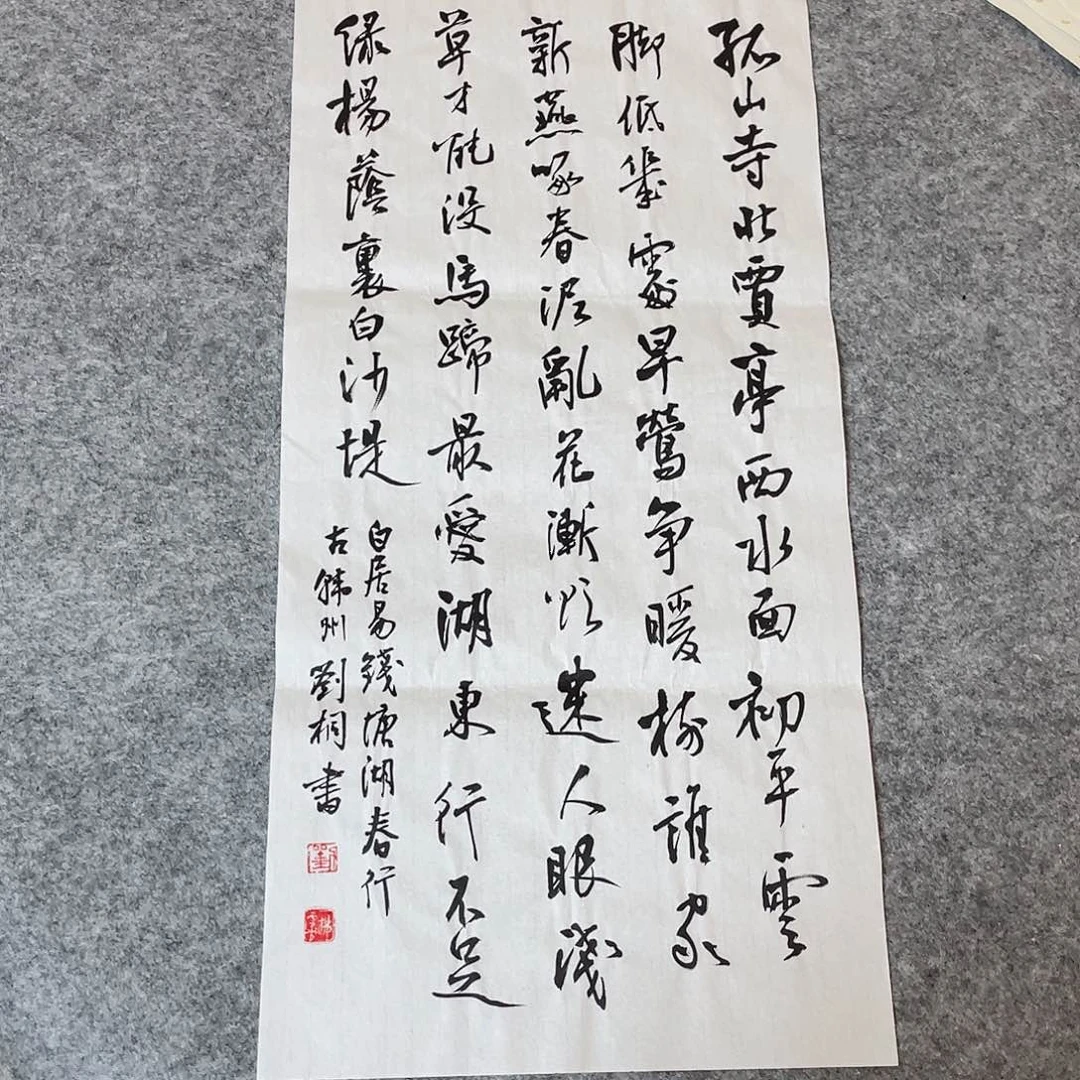 孤山寺北賈亭西水面初平雲
脚低幾處早鶯争暖樹誰家
新燕啄春泥亂花漸欲迷人眼淺
草才能没馬蹄最愛湖東行不足
緑楊蔭裏白沙堤
白居易錢塘湖春行
古韩州劉桐書
劉